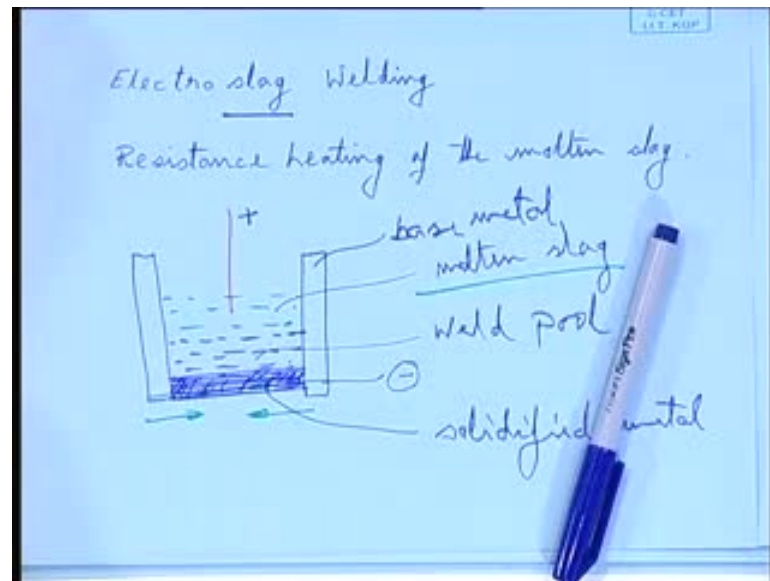 Electroslag Welding
Resistance heating of the molten slag.
+
base metal
molten slag
weld pool
−
solidified metal
I.I.T. KGP